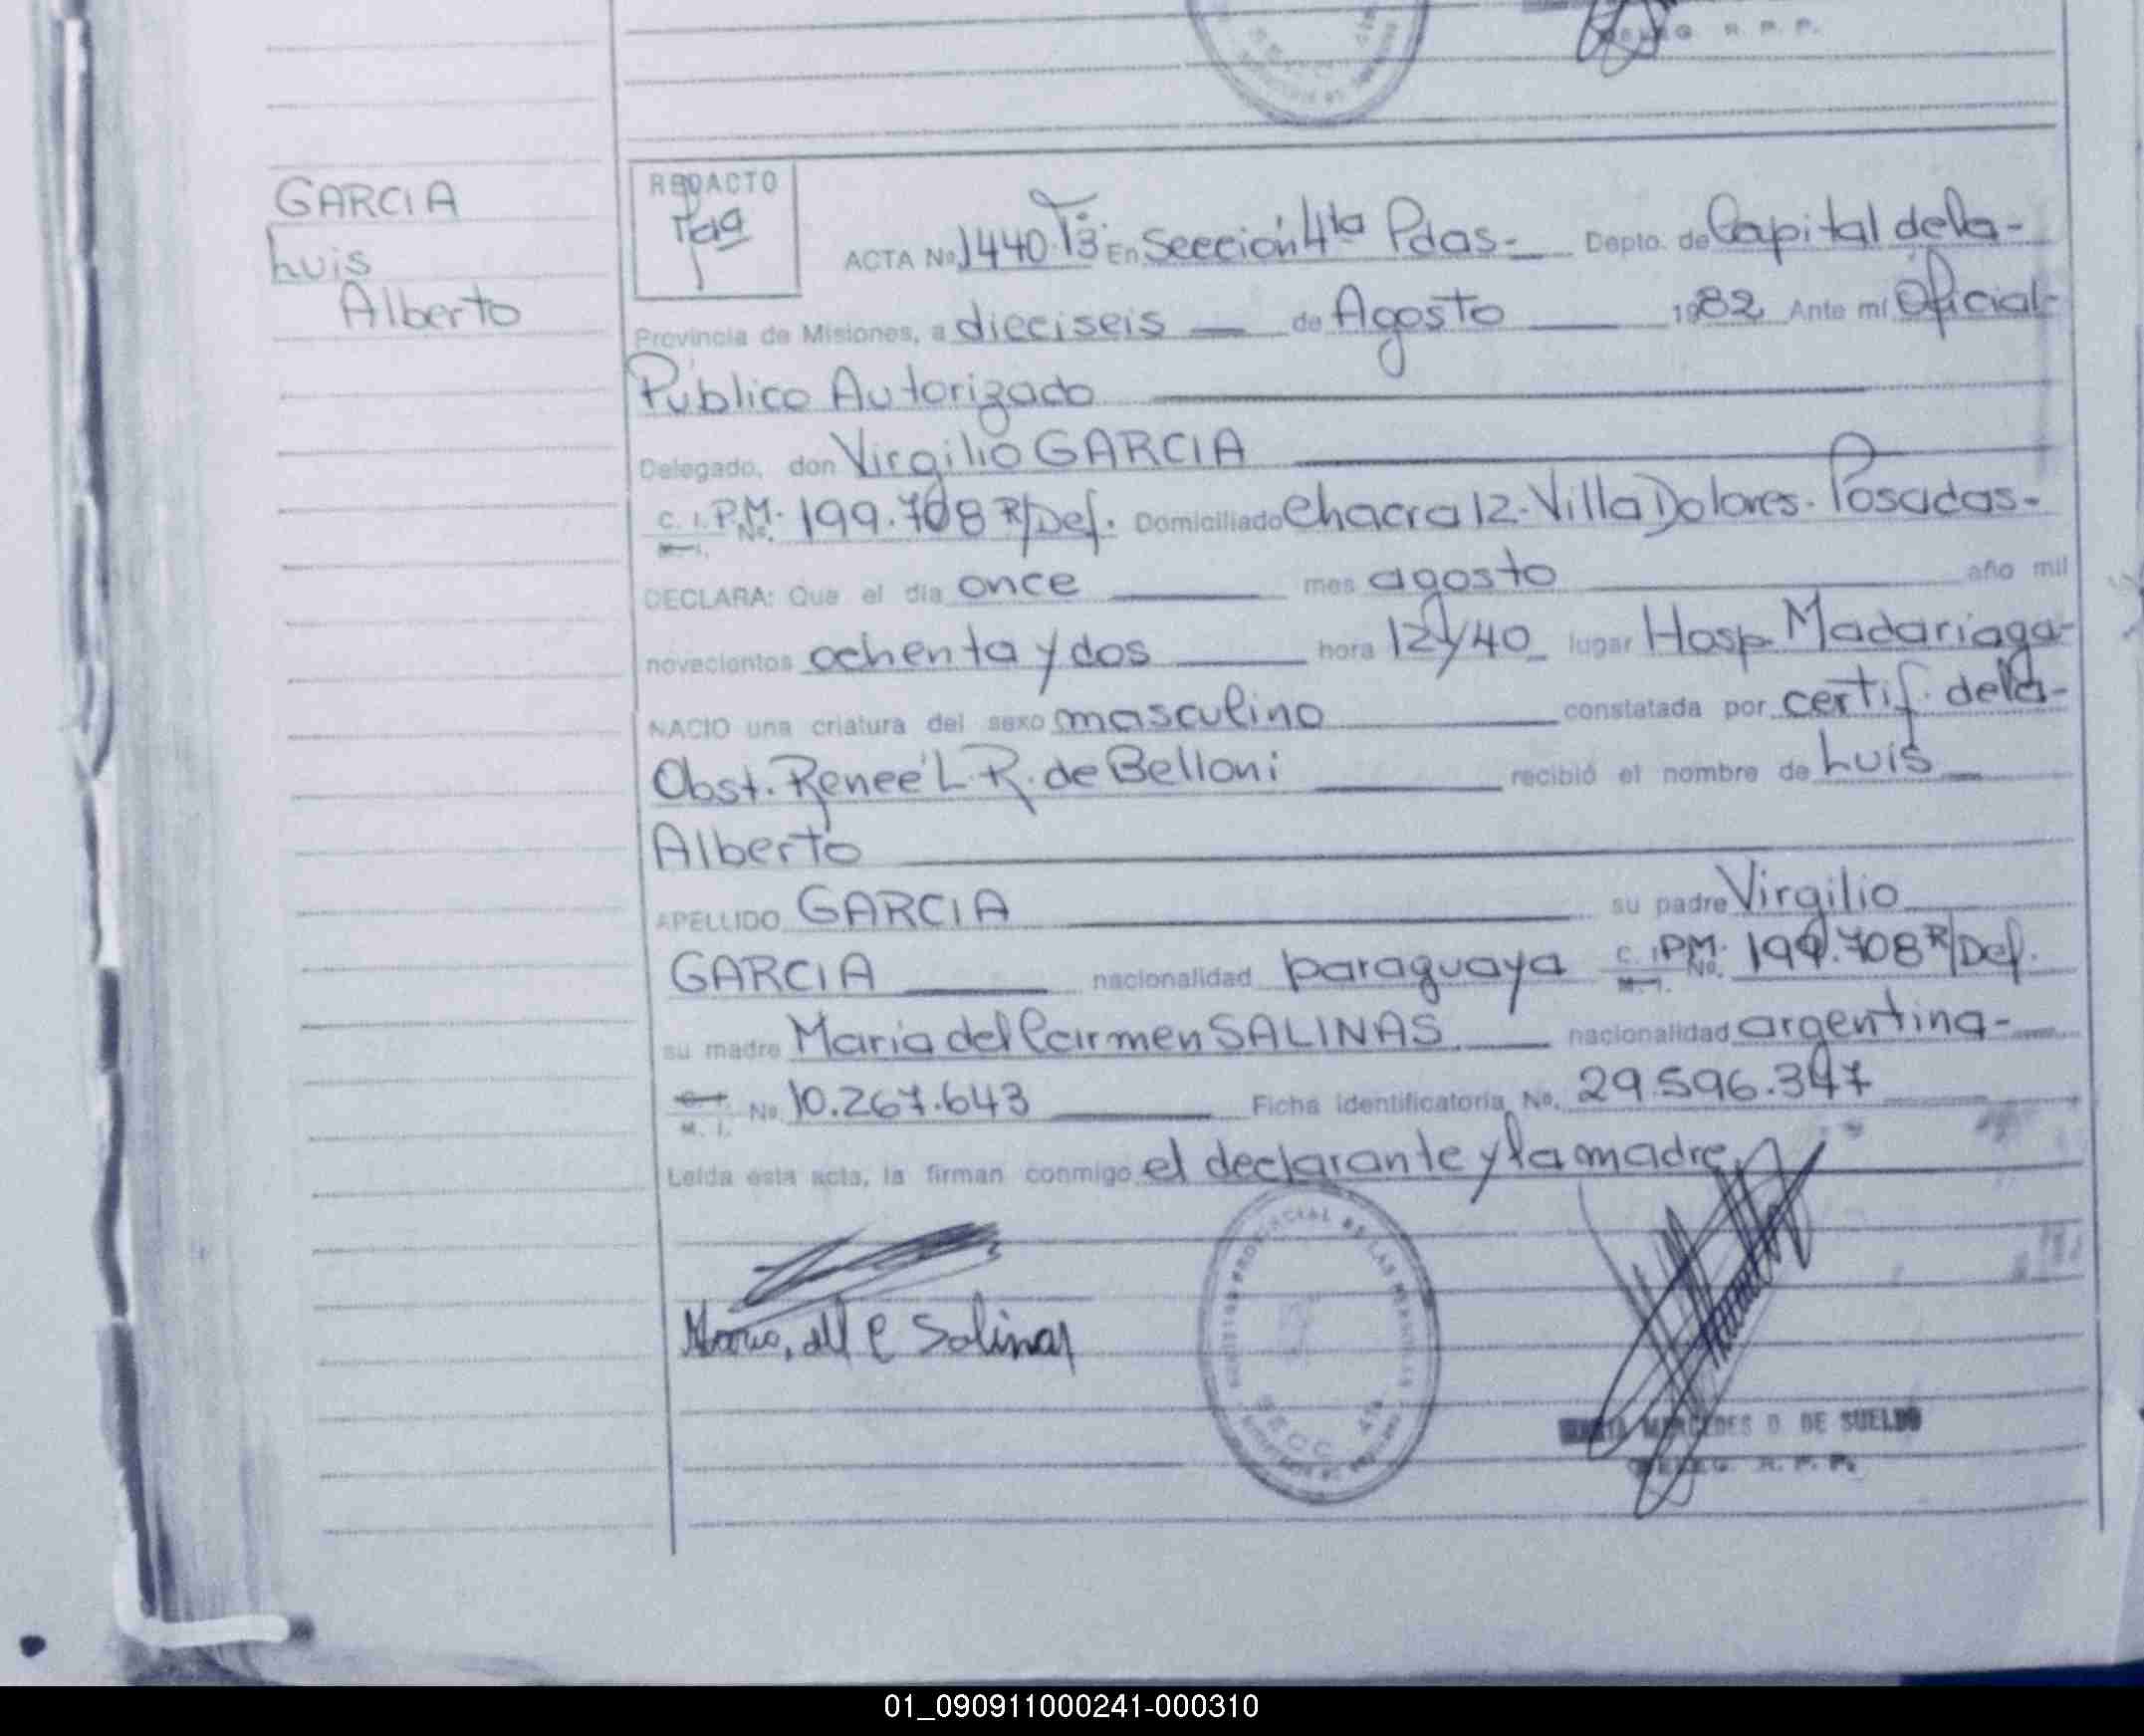 DELEG. R. P. P.
GARCIA
Luis
Alberto
REDACTO
ACTA No 1440 Tº3º En Sección 4ta Pdas.- Depto. de Capital de la-
Provincia de Misiones, a dieciseis de Agosto 1982 Ante mi Oficial-
Público Autorizado
Delegado, don Virgilio GARCIA
C. I. P.M. No. 199.708 R/Def. Domiciliado Chacra 12. Villa Dolores. Posadas-
M. I.
DECLARA: Que el día once mes agosto año mil
novecientos ochenta y dos hora 12y40 lugar Hosp. Madariaga-
NACIO una criatura del sexo masculino constatada por certif. de la-
Obst. Reneé L. R. de Belloni recibió el nombre de Luis
Alberto
APELLIDO GARCIA su padre Virgilio
GARCIA nacionalidad paraguaya C. I. P.M. No. 199.708 R/Def.
M. I.
su madre Maria del Carmen SALINAS nacionalidad argentina-
C. I.
M. I. No. 10.267.643 Ficha identificatoria No. 29.596.347
Leída esta acta, la firman conmigo el declarante y la madre
Maria, del C Salinas
PROVINCIAL DE LAS PERSONAS
SECC. 4ta
MERCEDES D. DE SUELDO
DELEG. R. P. P.
01_090911000241-000310